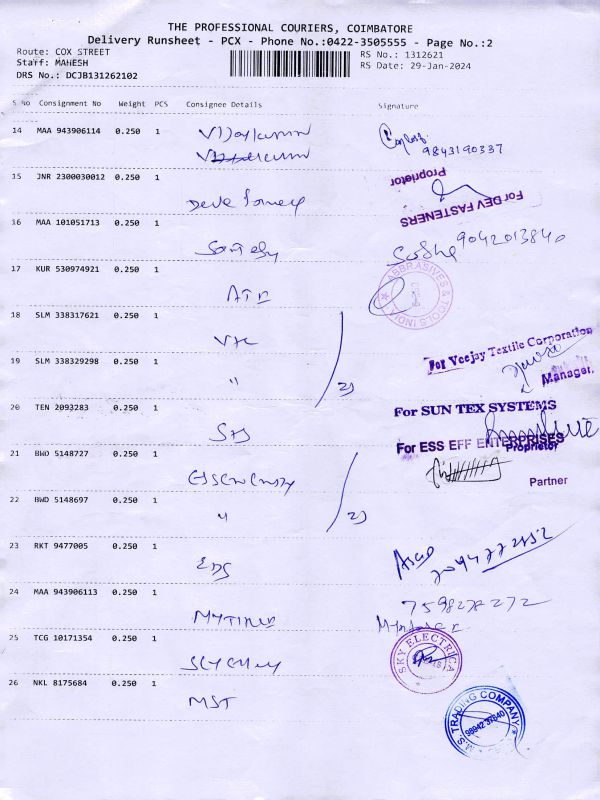 THE PROFESSIONAL COURIERS, COIMBATORE
Delivery Runsheet - PCX - Phone No.:0422-3505555 - Page No.:2
Route: COX STREET
RS No.: 1312621
Staff: MAHESH
RS Date: 29-Jan-2024
DRS No.: DCJB131262102
S No Consignment No Weight PCS Consignee Details Signature
14 MAA 943906114 0.250 1 Vijaykumar
9843190337
Proprietor
15 JNR 2300030012 0.250 1
For DEV FASTENERS
16 MAA 101051713 0.250 1
9042013840
17 KUR 530974921 0.250 1 ATI
ABBRASIVES & TOOLS INDIA
18 SLM 338317621 0.250 1
For Veejay Textile Corporation
19 SLM 338329298 0.250 1 "
Manager.
20 TEN 2093283 0.250 1
For SUN TEX SYSTEMS
Proprietor
For ESS EFF ENTERPRISES
21 BWD 5148727 0.250 1
Partner
22 BWD 5148697 0.250 1 "
23 RKT 9477005 0.250 1 EDS
24 MAA 943906113 0.250 1
7598278272
25 TCG 10171354 0.250 1
SKY ELECTRICA
26 NKL 8175684 0.250 1 MST
M.S. TRADING COMPANY
98942 37840